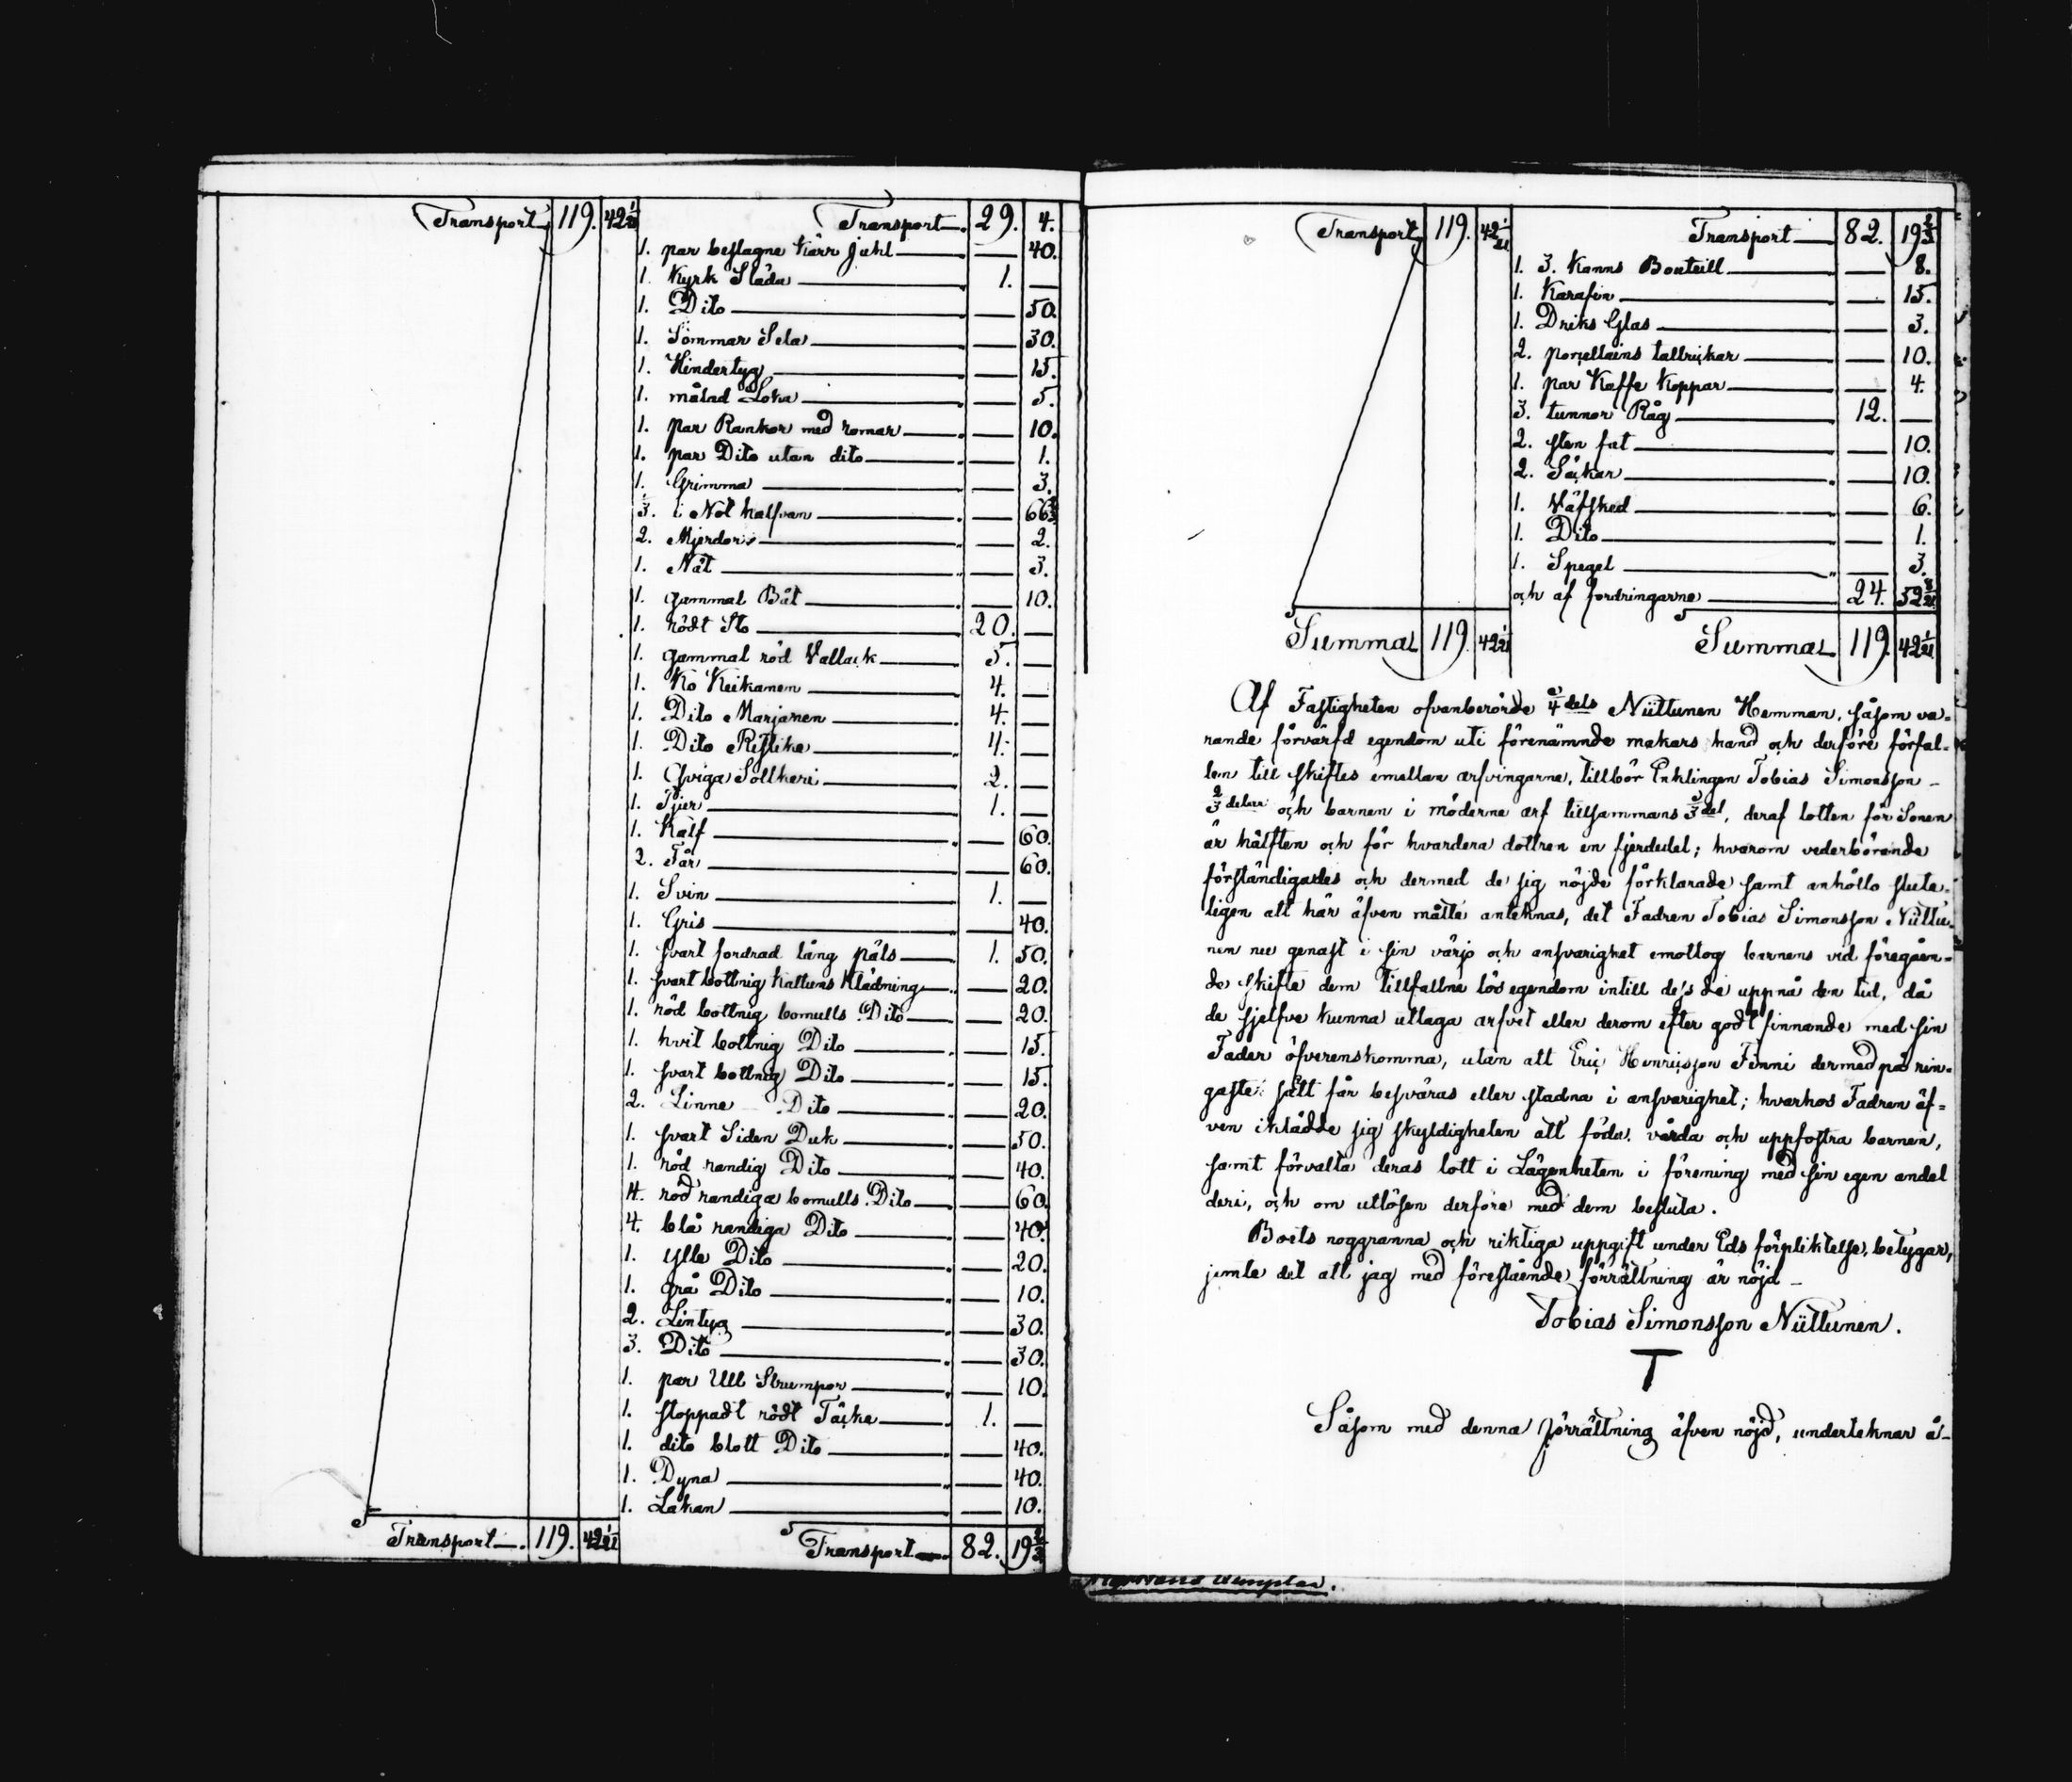 Transport 119. 42 1/21
Transport 29. 4.
1. par beslagne Kärr hjuhl — 40.
1. Kyrk Släda 1. —
1. Dito — 50.
1. Sommar Sela — 30.
1. Hindertyg — 15.
1. målad Loka — 5.
1. par Rankor med romar — 10.
1. par Dito utan dito — 1.
1. Grimma — 3.
1/3. i Not halfvan — 66 2/3
2. Mjerdor — 2.
1. Nät — 3.
1. gammal Båt — 10.
1. rödt Sto 20. —
1. gammal röd Vallack 5. —
1. Ko Keikanen 4. —
1. Dito Marjanen 4. —
1. Dito Ristike 4. —
1. Qviga Sollheri 2. —
1. Tjur 1. —
1. Kalf — 60.
2. Får — 60.
1. Svin 1. —
1. Gris — 40.
1. svart fordrad lång päls 1. 50.
1. svart bottnig Kattuns Klädning — 20.
1. röd bottnig bomulls Dito — 20.
1. hvit bottnig Dito — 15.
1. svart bottnig Dito — 15.
2. Linne Dito — 20.
1. svart Siden Duk — 50.
1. röd randig Dito — 40.
4. röd randiga bomulls Dito — 60.
4. blå randiga Dito — 40.
1. ylle Dito — 20.
1. grå Dito — 10.
2. Lintyg — 30.
3. Dito — 30.
1. par Ull Strumpor — 10.
1. stoppadt rödt Täcke 1. —
1. dito blott Dito — 40.
1. Dyna — 40.
1. Lakan — 10.
Transport 119. 42 1/21
Transport 82. 19 2/3
Transport 119. 42 1/21
Transport 82. 19 2/3
1. 3. Kanns Bouteill — 8.
1. Karafin — 15.
1. Driks Glas — 3.
2. porcellains tallrickar — 10.
1. par Kaffe Koppar — 4.
3. tunnor Råg 12. —
2. sten fat — 10.
2. Säckar — 10.
1. Väfsked — 6.
1. Dito — 1.
1. Spegel — 3.
och af fordringarne 24. 52 8/21
Summa 119. 42 1/21
Summa 119. 42 1/21
Af Fastigheten ofvanberörde 1/4 dels Niittunen Hemman, såsom va-
rande förvärfd egendom uti förenämnde makars hand och derföre förfal-
len till skiftes emellan arfvingarne, tillbör Enklingen Tobias Simonsson
2/3 delar och barnen i möderne arf tillsammans 1/3 del, deraf lotten för Sonen
är hälften och för hvardera dottren en fjerdedel; hvarom vederbörande
förständigades och dermed de sig nöjde förklarade samt anhöllo slute-
ligen att här äfven måtte antecknas, det Fadren Tobias Simonsson Niittu-
nen nu genast i sin värjo och ansvarighet emottog barnens vid föregåen-
de skifte dem tillfallne lös egendom intill de's de uppnå den tid, då
de sjelfve kunna uttaga arfvet eller derom efter godt finnande med sin
Fader öfverenskomma, utan att Eric Henricsson Finni dermed på rin-
gaste sätt får besväras eller stadna i ansvarighet; hvarhos Fadren äf-
ven iklädde sig skyldigheten att föda, vårda och uppfostra barnen,
samt förvalta deras lott i Lägenheten i förening med sin egen andel
deri, och om utlösen derföre med dem besluta.
Boets noggranna och riktiga uppgift under Eds förpliktelse, betygar,
jemte det att jag med förestående förrättning är nöjd –
Tobias Simonsson Niittunen.
T
Såsom med denna förrättning äfven nöjd, undertecknar å-